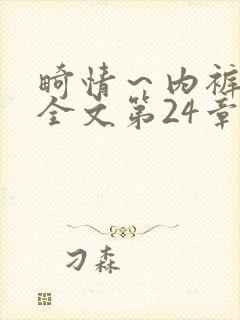 畸情~内裤
全文第24章
刁森